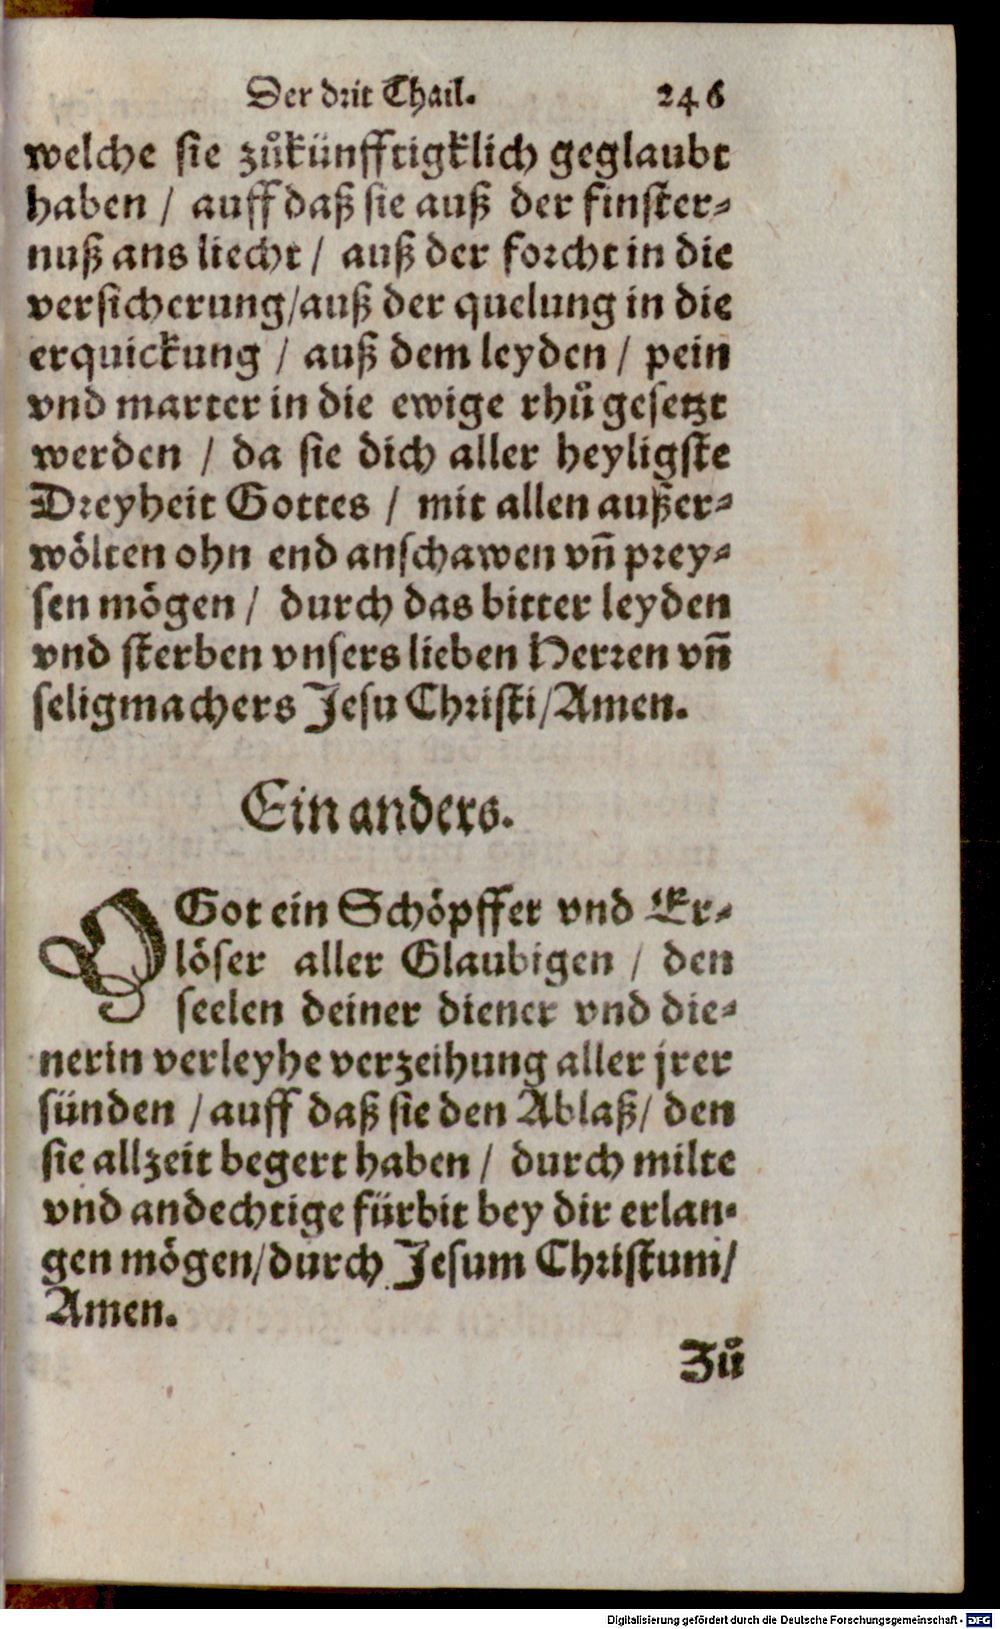 Der drit Thail. 246
welche sie zuͦkünfftigklich geglaubt
haben / auff daß sie auß der finster⸗
nuß ans liecht / auß der forcht in die
versicherung/auß der quelung in die
erquickung / auß dem leyden / pein
vnd marter in die ewige rhuͦ gesetzt
werden / da sie dich aller heyligste
Dreyheit Gottes / mit allen außer⸗
wölten ohn end anschawen vñ prey⸗
sen mögen / durch das bitter leyden
vnd sterben vnsers lieben Herren vñ
seligmachers Jesu Christi/Amen.
Ein anders.
O Got ein Schöpffer vnd Er⸗
löser aller Glaubigen / den
seelen deiner diener vnd die⸗
nerin verleyhe verzeihung aller jrer
sünden / auff daß sie den Ablaß/ den
sie allzeit begert haben / durch milte
vnd andechtige fürbit bey dir erlan⸗
gen mögen/durch Jesum Christum/
Amen.
Zuͦ
Digitalisierung gefördert durch die Deutsche Forschungsgemeinschaft - DFG